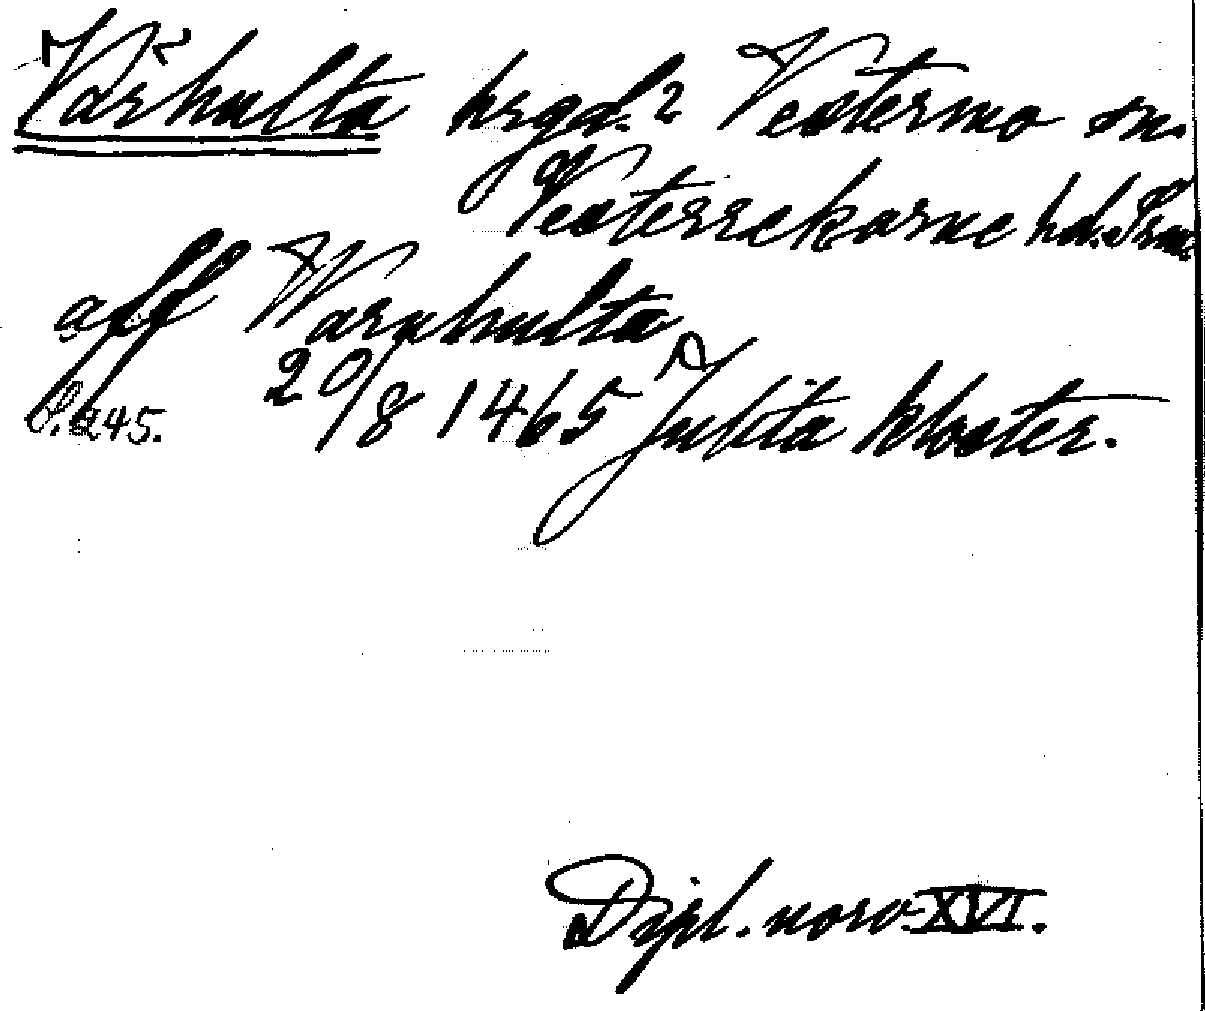 Vårhulta hrgd.² Vestermo sn.
Vesterrekarne hd. Srm.
aff Warahulta
20/8 1465 Julita kloster.
S. 245.
Dipl. norv. XVI.